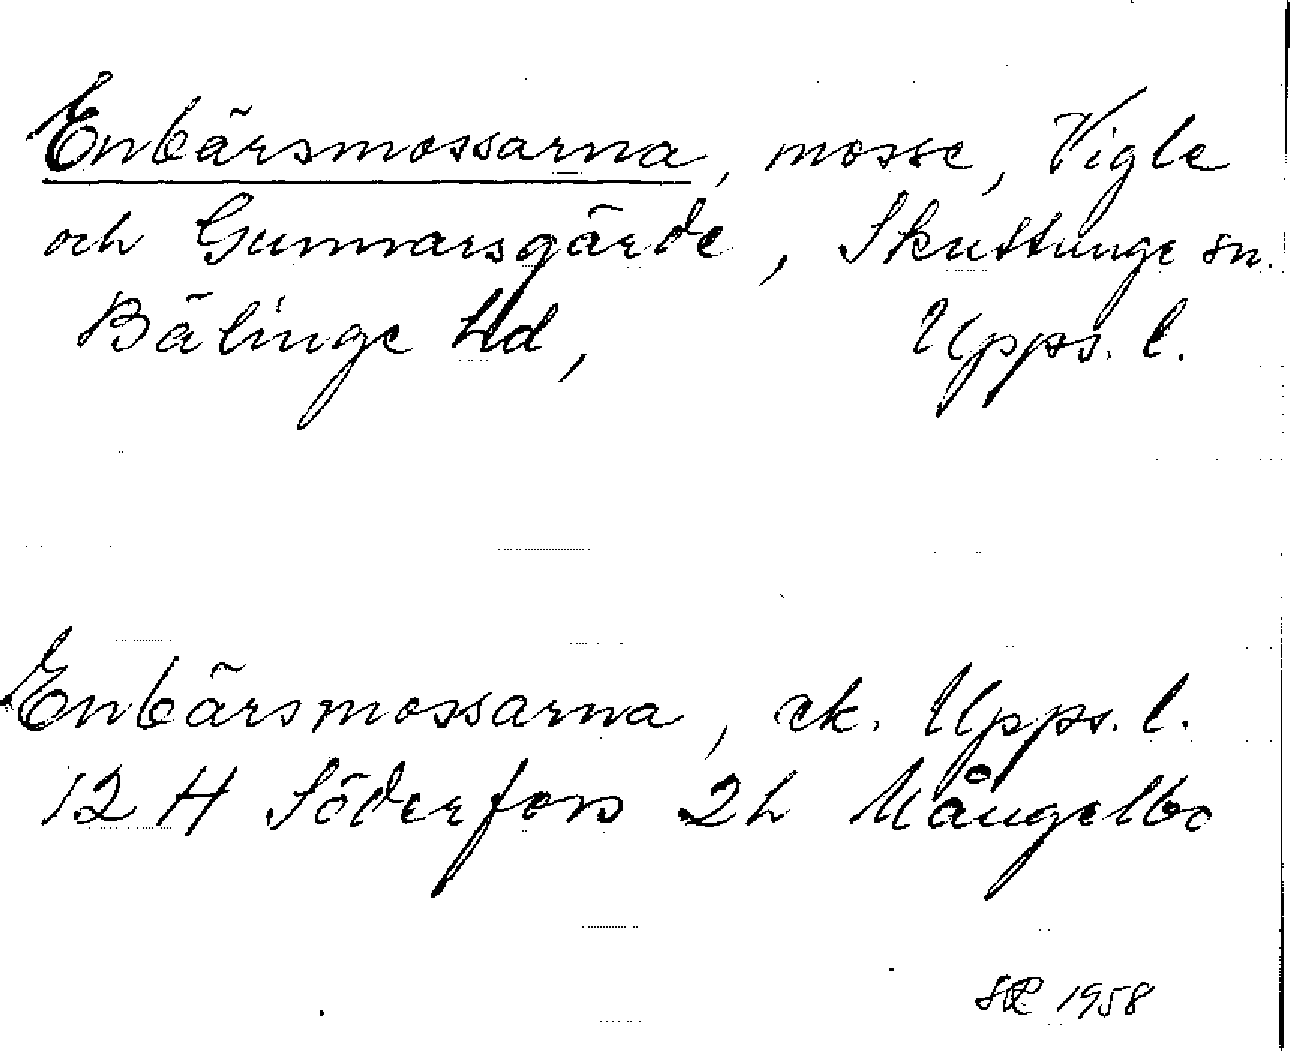 Enbärsmossarna, mosse, Vigle
och Gunnarsgärde, Skuttunge sn.
Bälinge hd, Upps. l.
Enbärsmossarna, ek. Upps. l.
12 H Söderfors 2h Mångelbo
1958